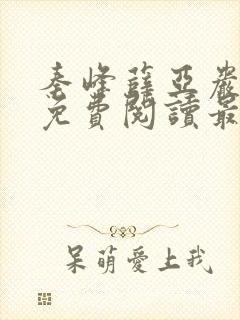 秦峰薛亞嚴
免費閱讀最
呆萌愛上我